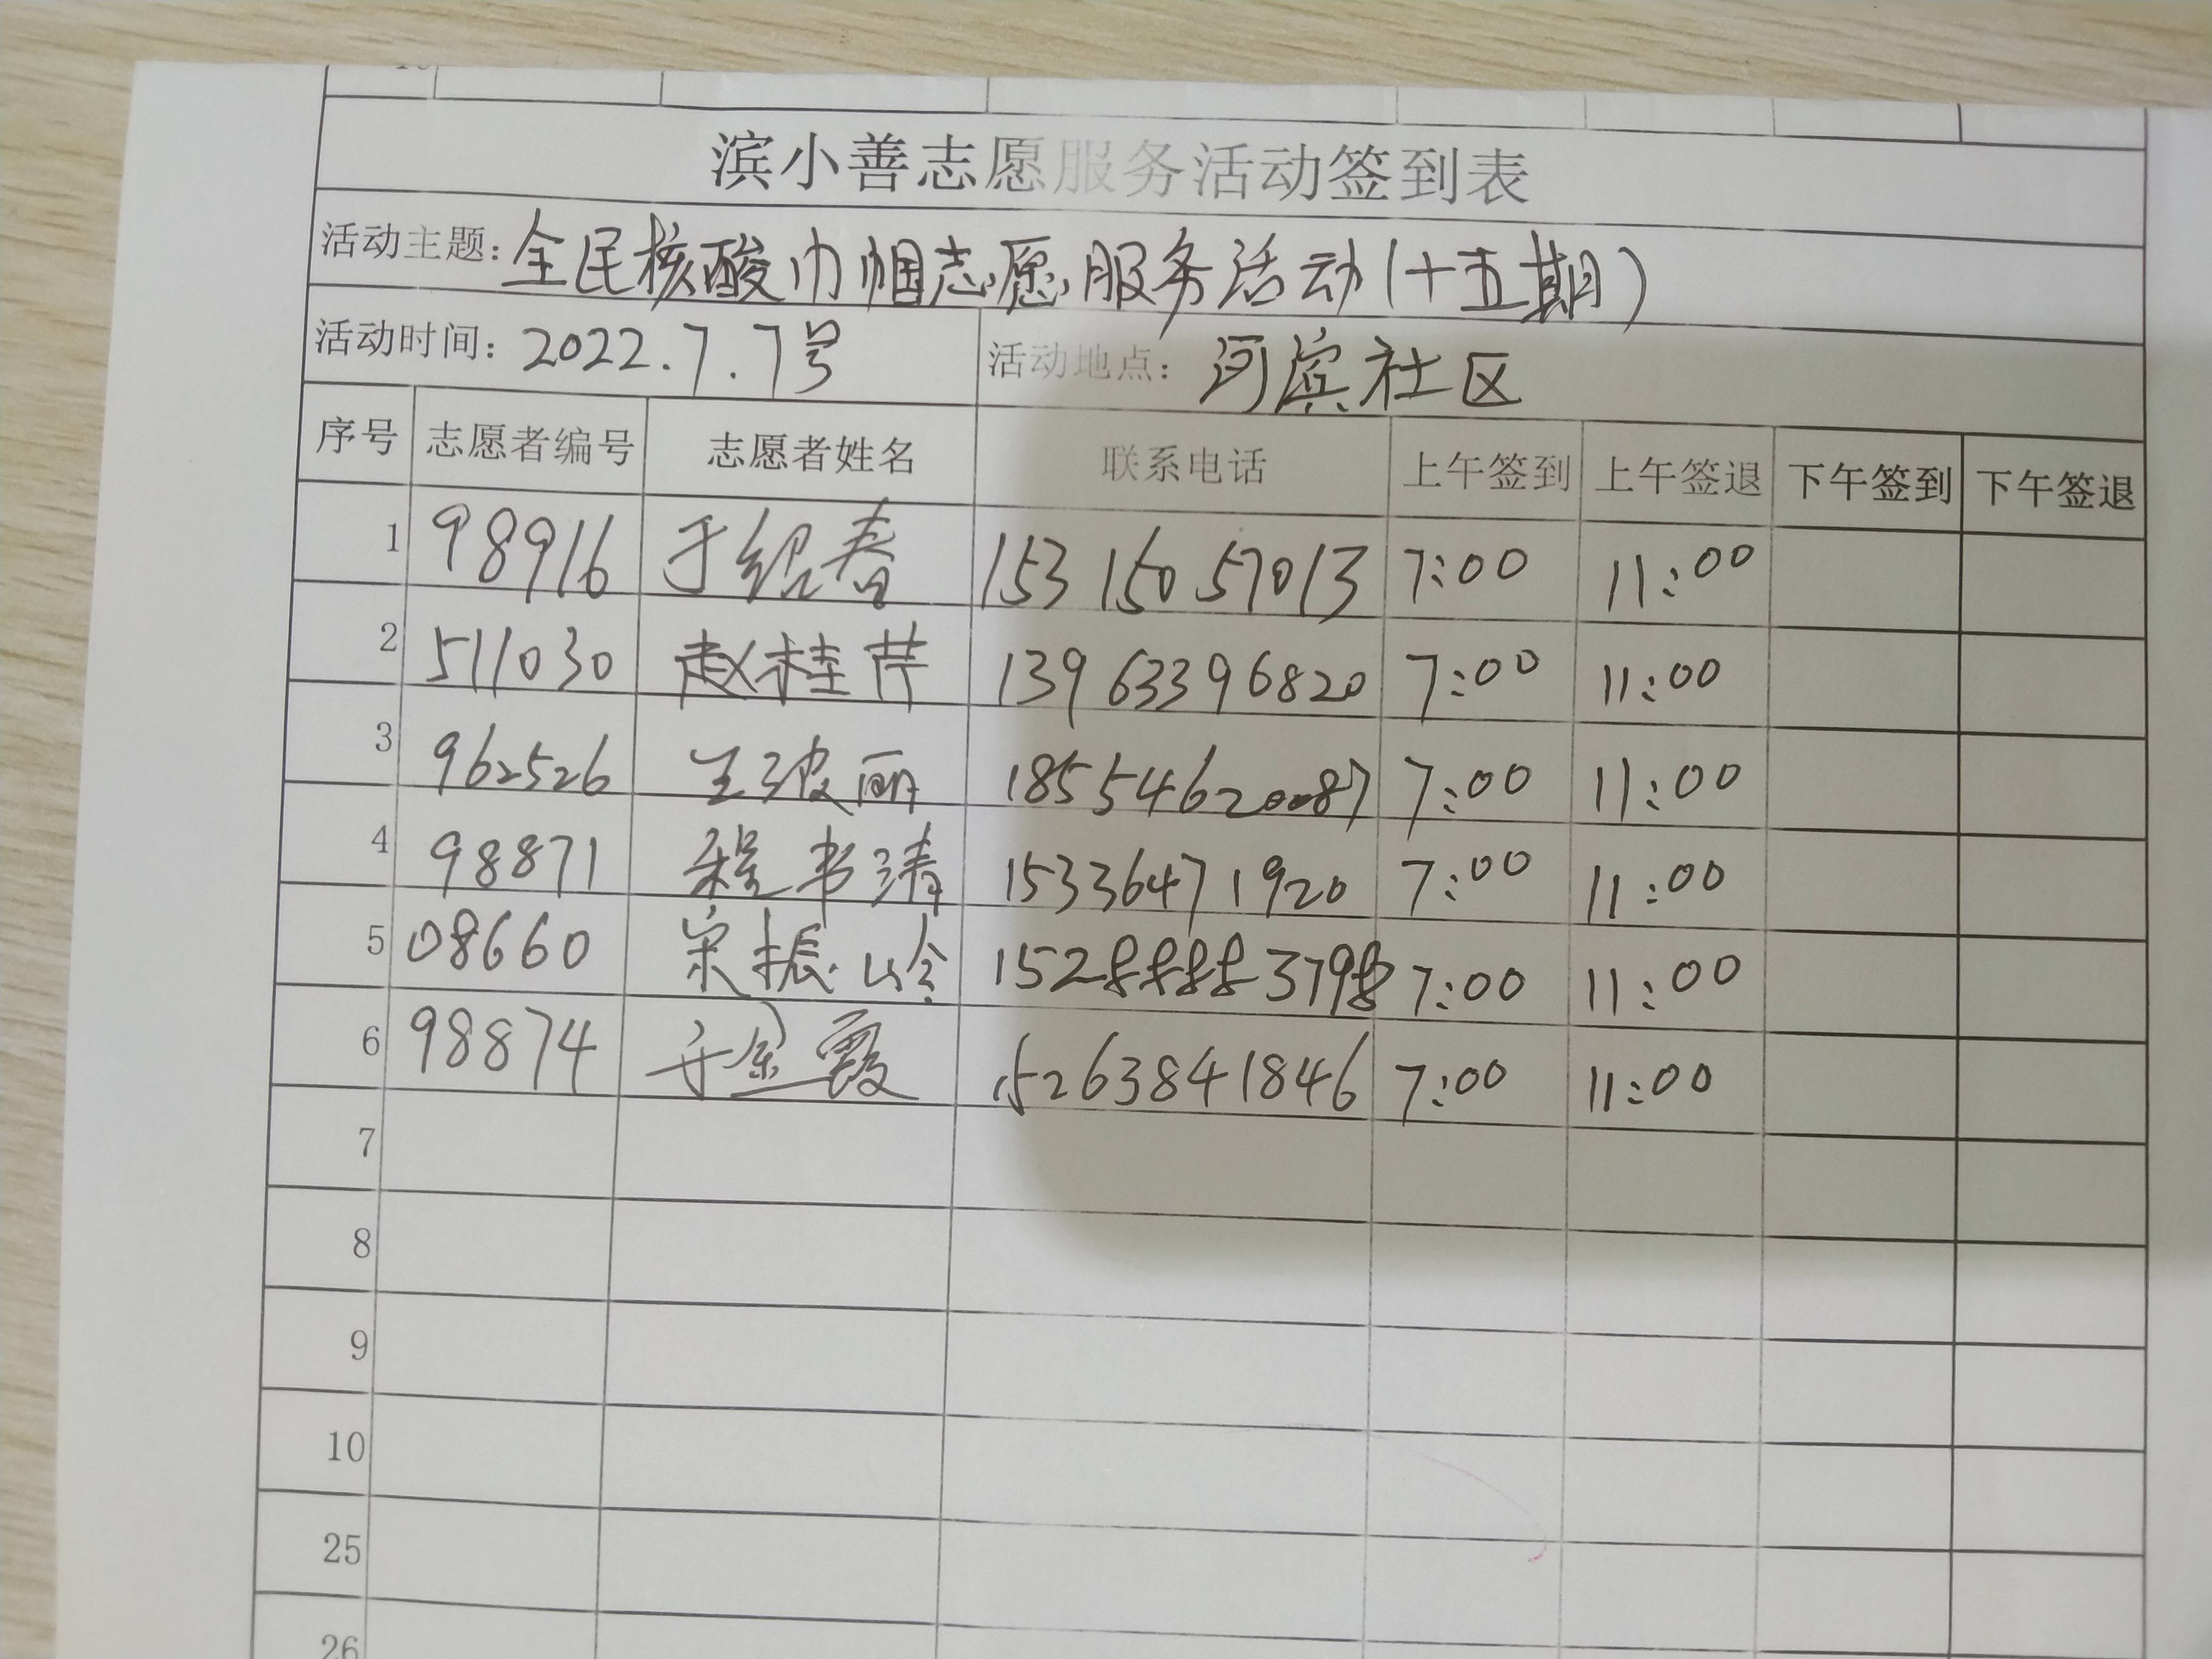 滨小善志愿服务活动签到表
活动主题: 全民核酸巾帼志愿服务活动(十五期)
活动时间: 2022.7.7号 活动地点: 河滨社区
序号 志愿者编号 志愿者姓名 联系电话 上午签到 上午签退 下午签到 下午签退
1 98916 于绍春 15315057013 7:00 11:00
2 511030 赵桂芹 13963396820 7:00 11:00
3 962526 王波丽 18554620087 7:00 11:00
4 98871 程书清 15336471920 7:00 11:00
5 08660 宋振岭 15288883798 7:00 11:00
6 98874 于金霞 15263841846 7:00 11:00
7
8
9
10
25
26